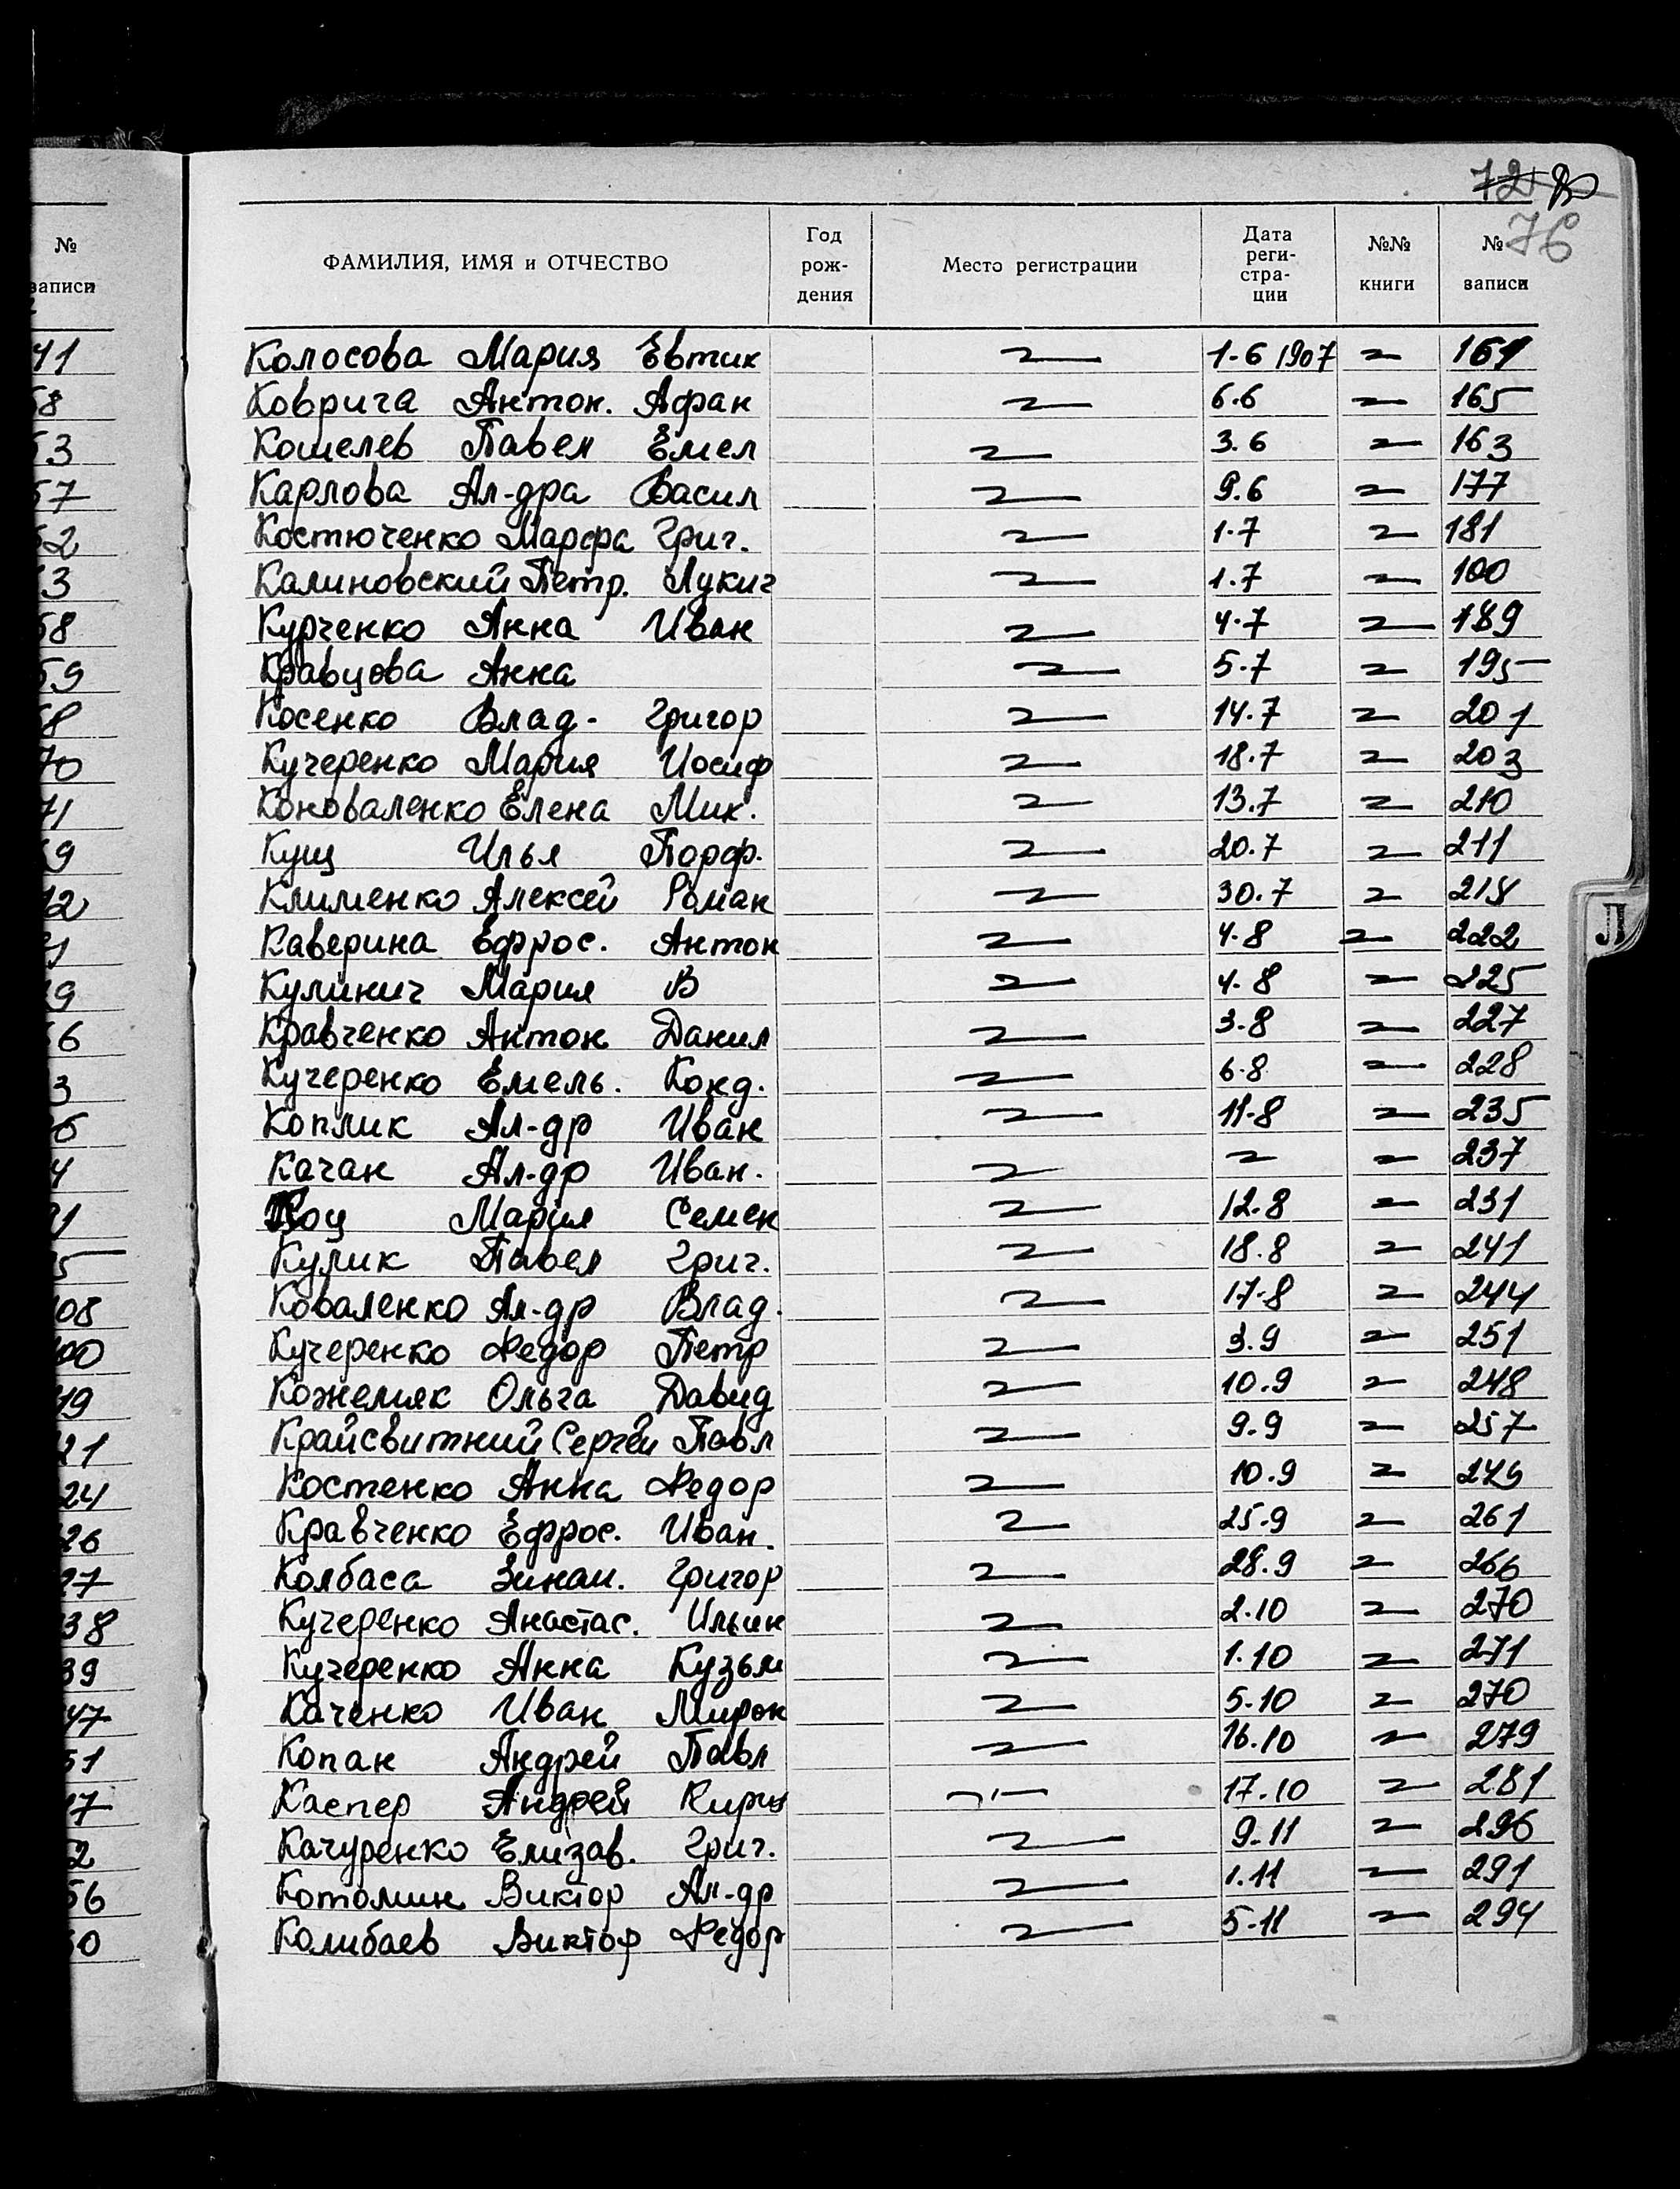 72
76
№ записи
ФАМИЛИЯ, ИМЯ и ОТЧЕСТВО Год рож- дения Место регистрации Дата реги- стра- ции №№ книги № записи
Колосова Мария Евтик 1-6 1907 161
Коврига Антон. Афан 6.6 165
Кошелев Павел Емел 3.6 163
Карлова Ал-дра Васил 9.6 177
Костюченко Марфа Григ. 1.7 181
Калиновский Петр. Лукич 1.7 100
Курченко Анна Иван 4.7 189
Кравцова Анна 5.7 195
Косенко Влад- Григор 14.7 201
Кучеренко Мария Иосиф 18.7 203
Коноваленко Елена Мик. 13.7 210
Кущ Илья Порф. 20.7 211
Клименко Алексей Роман 30.7 218
Каверина Ефрос. Антон 4.8 222
Кулинич Мария В 4.8 225
Кравченко Антон Данил 3.8 227
Кучеренко Емель. Конд. 6.8 228
Коплик Ал-др Иван 11-8 235
Качан Ал-др Иван. 237
Коц Мария Семен 12.8 231
Кулик Павел Григ. 18.8 241
Коваленко Ал-др Влад. 17-8 244
Кучеренко Федор Петр 3.9 251
Кожемяк Ольга Давид 10.9 248
Крайсвитний Сергей Павл 9.9 257
Костенко Анна Федор 10.9 249
Кравченко Ефрос. Иван. 25.9 261
Колбаса Зинаи. Григор 28.9 266
Кучеренко Анастас. Ильин 2.10 270
Кучеренко Анна Кузьм 1.10 271
Каченко Иван Мирон 5-10 270
Копан Андрей Павл 16.10 279
Каспер Андрей Кирил 17.10 281
Качуренко Елизав. Григ. 9-11 296
Котомин Виктор Ал-др 1.11 291
Колибаев Виктор Федор 5-11 294
Л